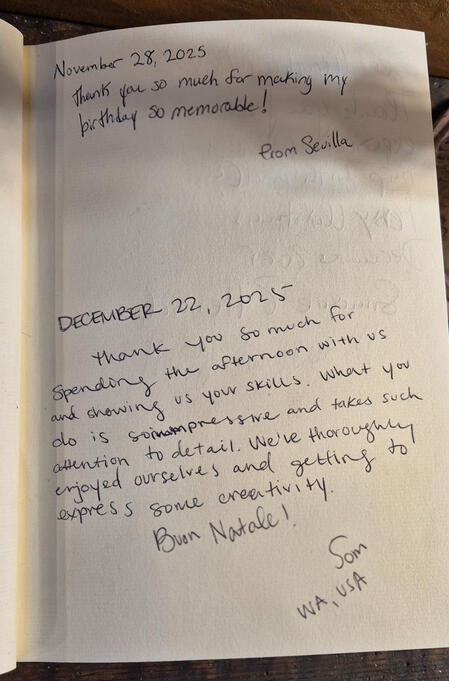 November 28, 2025
Thank you so much for making my
birthday so memorable!
from Sevilla
DECEMBER 22, 2025
Thank you so much for
spending the afternoon with us
and showing us your skills. What you
do is so impressive and takes such
attention to detail. We've thoroughly
enjoyed ourselves and getting to
express some creativity.
Buon Natale!
Som
WA, USA